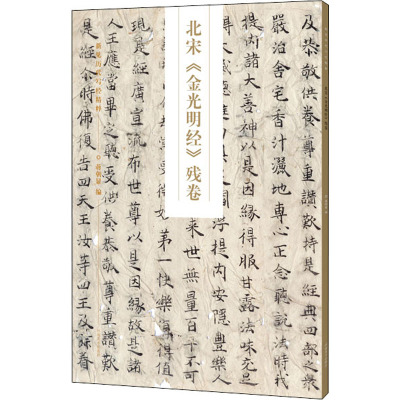 及恭敬供養尊重讚歎持是經典四部之衆
嚴治舍宅香汁灑地專心正念聽說法時我
提內諸大善神以是因緣得服甘露法味充足
浮提内安隱豐樂人
北宋《金光明经》残卷
來世無量百千不可
第一快樂得值
現是經廣宣流布世尊以是因緣故是諸
人王應當畢定聽受供養恭敬尊重讚歎
历代写经精粹
编
是經尒時佛復告四天王汝等四王及餘眷